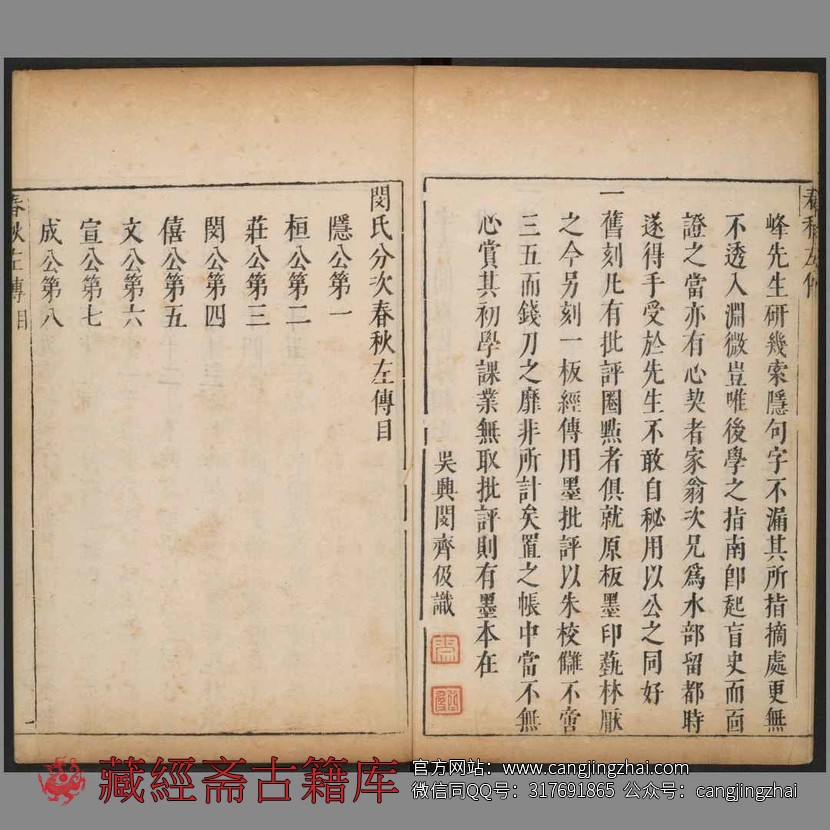 春秋左傳
峰先生研幾索隱句字不漏其所指摘處更無
不透入淵微豈唯後學之指南即起盲史而面
證之當亦有心契者家翁次兄爲水部留都時
遂得手受於先生不敢自秘用以公之同好
一舊刻凡有批評圈點者俱就原板墨印藝林厭
之今另刻一板經傳用墨批評以朱校讎不啻
三五而錢刀之靡非所計矣置之帳中當不無
心賞其初學課業無取批評則有墨本在
吳興閔齊伋識
閔氏分次春秋左傳目
隱公第一
桓公第二
莊公第三
閔公第四
僖公第五
文公第六
宣公第七
成公第八
春秋左傳目
藏經斎古籍库
官方网站：www.cangjingzhai.com
微信同QQ号：317691865 公众号：cangjingzhai